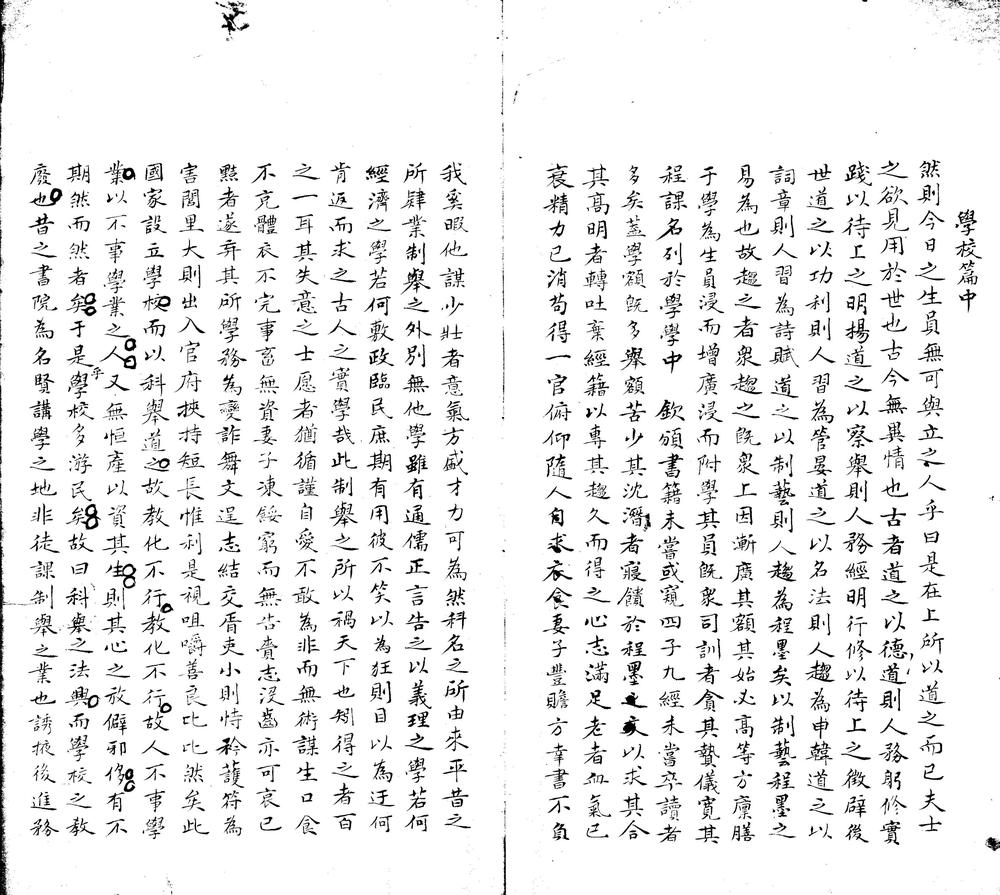 學校篇中
然則今日之生員無可與立之人乎曰是在上所以道之而已夫士
之欲見用於世也古今無異情也古者道之以德道則人務躬修實
踐以待上之明揚道之以察舉則人務經明行修以待上之徵辟後
世道之以功利則人習為管晏道之以名法則人趨為申韓道之以
詞章則人習為詩賦道之以制藝則人趨為程墨矣以制藝程墨之
易為也故趨之者衆趨之旣衆上因漸廣其額其始必高等方廩膳
于學為生員浸而增廣浸而附學其員旣衆司訓者貪其贄儀寬其
程課名列於學學中 欽頒書籍未嘗或窺四子九經未嘗卒讀者
多矣蓋學額旣多舉額苦少其沈潛者寢饋於程墨之文以求其合
其高明者轉吐棄經籍以專其趨久而得之心志滿足老者血氣已
衰精力已消苟得一官俯仰隨人自求衣食妻子豐贍方幸書不負
我奚暇他謀少壯者意氣方盛才力可為然科名之所由來平昔之
所肄業制舉之外別無他學雖有通儒正言告之以義理之學若何
經濟之學若何敷政臨民庶期有用彼不笑以為狂則目以為迂何
肯返而求之古人之實學哉此制舉之所以禍天下也矧得之者百
之一耳其失意之士愿者猶循謹自愛不敢為非而無術謀生口食
不克體衣不完事畜無資妻子凍餒窮而無告賫志沒齒亦可哀已
黠者遂弃其所學務為變詐舞文逞志結交胥吏小則恃矜護符為
害閭里大則出入官府挾持短長惟利是視咀嚼善良比比然矣此
國家設立學校而以科舉道之故教化不行教化不行故人不事學
業以不事學業之人又無恒產以資其生則其心之放僻邪侈有不
期然而然者矣于是乎學校多游民矣故曰科舉之法興而學校之教
廢也昔之書院為名賢講學之地非徒課制舉之業也誘掖後進務